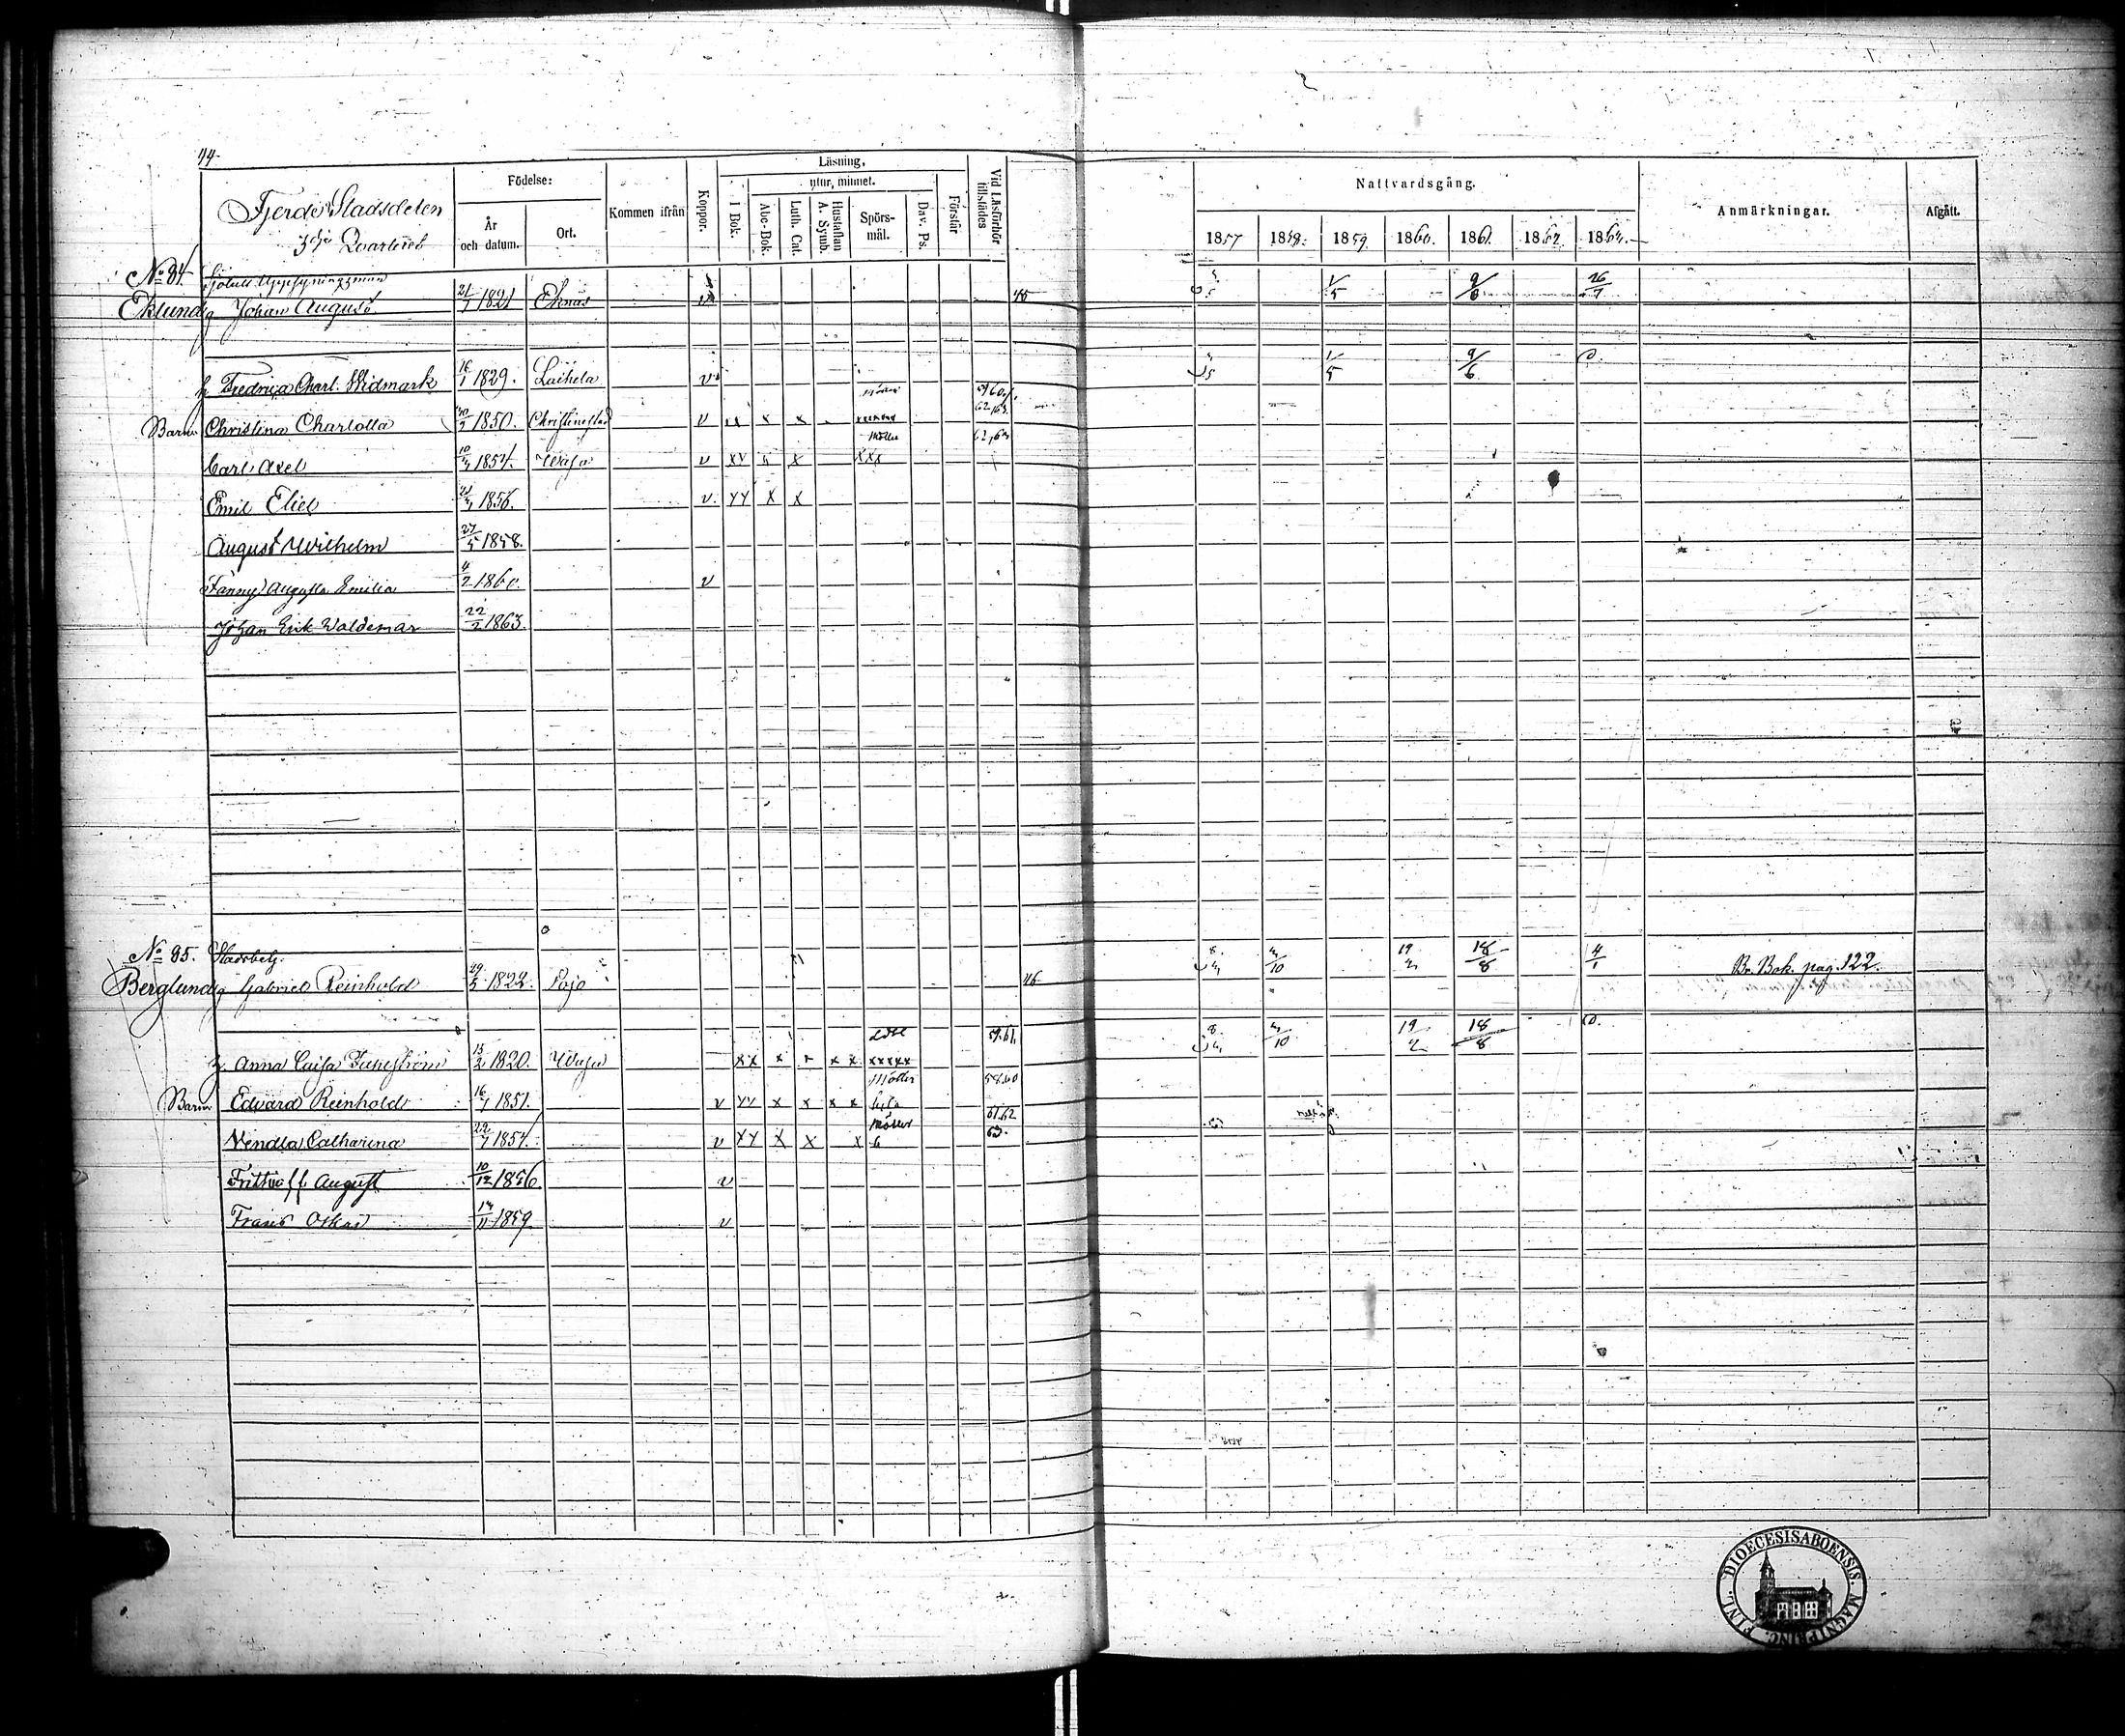 44.
Fjerde Stadsdelen
3dje Qvarteret
Födelse:
År och datum.
Ort.
Kommen ifrån
Koppor.
Läsning,
I Bok.
utur, minnet.
Abc-Bok.
Luth. Cat.
Hustaflan A. Symb.
Spörs-mål.
Dav. Ps.
Förstår
Vid Läsförhör tillstädes
Nattvardsgång.
1857 1858. 1859. 1860. 1861. 1862. 1864.
Anmärkningar.
Afgått.
No 84. Sjötull Uppsyningsman
Eklund Johan August 21/7 1821 Ekenäs v 1/5 9/6 26/7
h Fredrica Charl. Widmark 16/1 1829. Laihela v 1/5 9/6
Barn Christina Charlotta 1850. Christinestad v xx x x
Möller 62,63
Carl Axel 1854. Wasa v xv x xxx
Emil Eliel 1856. v. xx x x
August Wilhelm 27/5 1858.
Fanny Augusta Emilia 4/2 1860 v
Johan Erik Waldemar 22/2 1863.
No 85. Stadsbetj.
Berglund Gabriel Reinhold 29/5 1822. Pojo 46. 19/2 18/8 4/1 Br. Bok. pag. 122.
59.61.
h. Anna Caisa 13/2 1820. Wasa xx x x x x xxxxx 19/2 18/8
Möller 58.60
Barn Edvard Reinhold 16/1 1851. v xx x x x x
Möller 61.62
Vendla Catharina 22/7 1854. v xx x x x 6 63.
Frithioff August 10/12 1856 v
Frans Oskar 14/11 1859. v
FINL. DIOECESIS ABOENSIS. MAGNI PRINC.